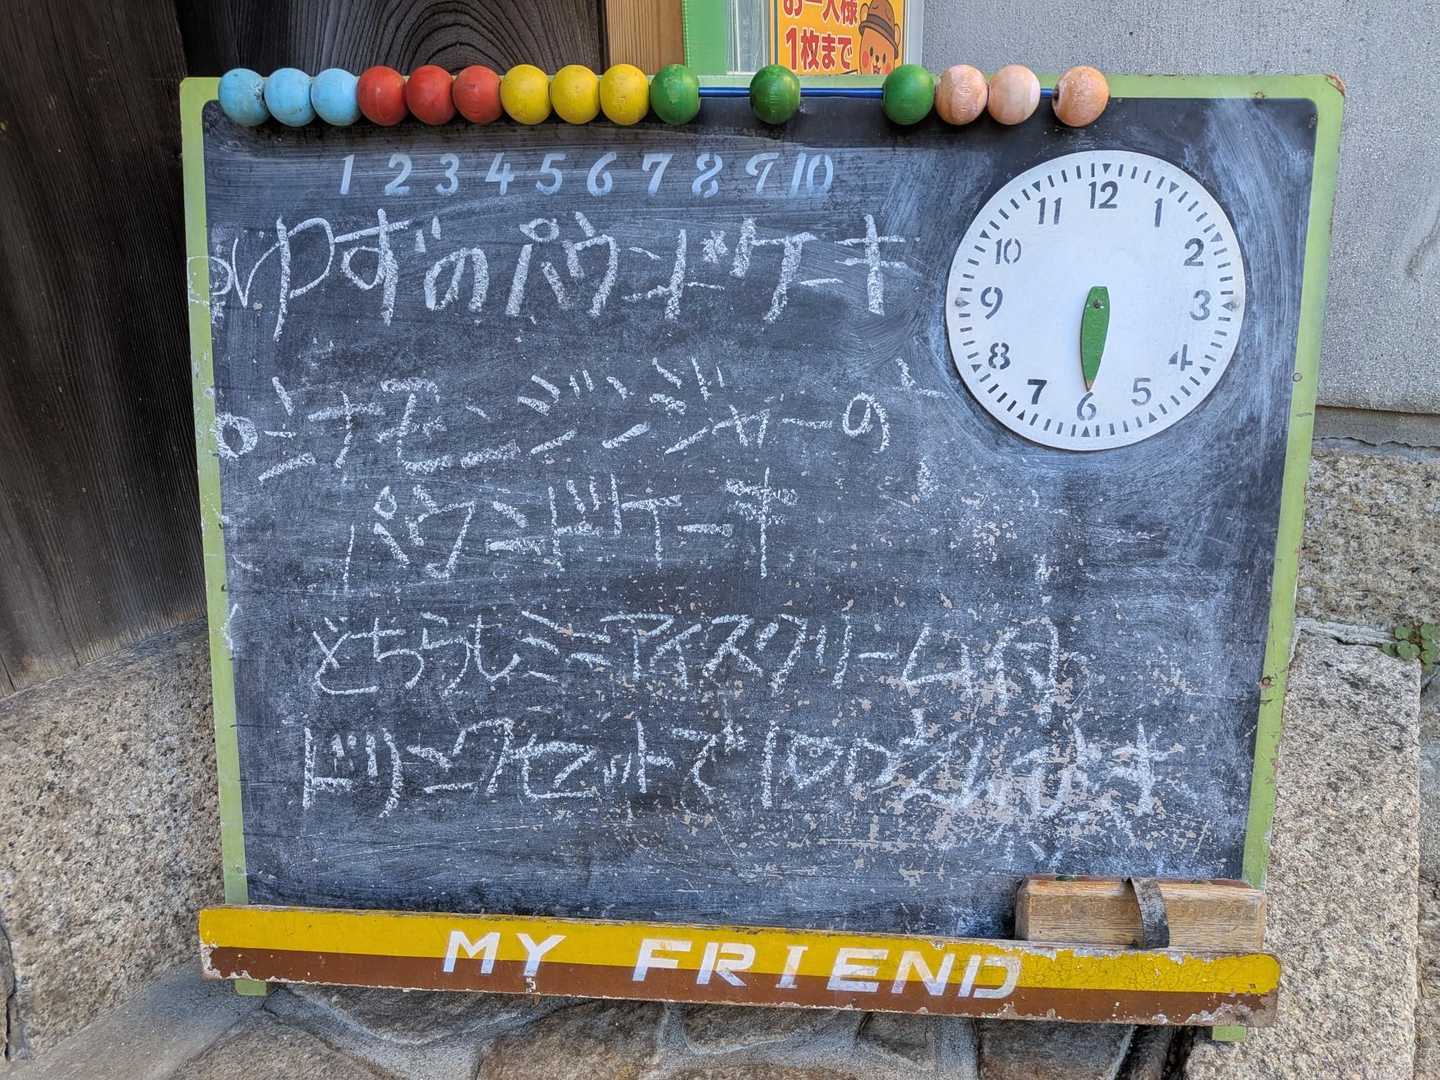 お一人様
1枚まで
1 2 3 4 5 6 7 8 9 10
ゆずのパウンドケーキ
シナモンジンジャーの
パウンドケーキ
どちらもミニアイスクリーム付
ドリンクセットで100えんびき
12 1 2 3 4 5 6 7 8 9 10 11
MY FRIEND